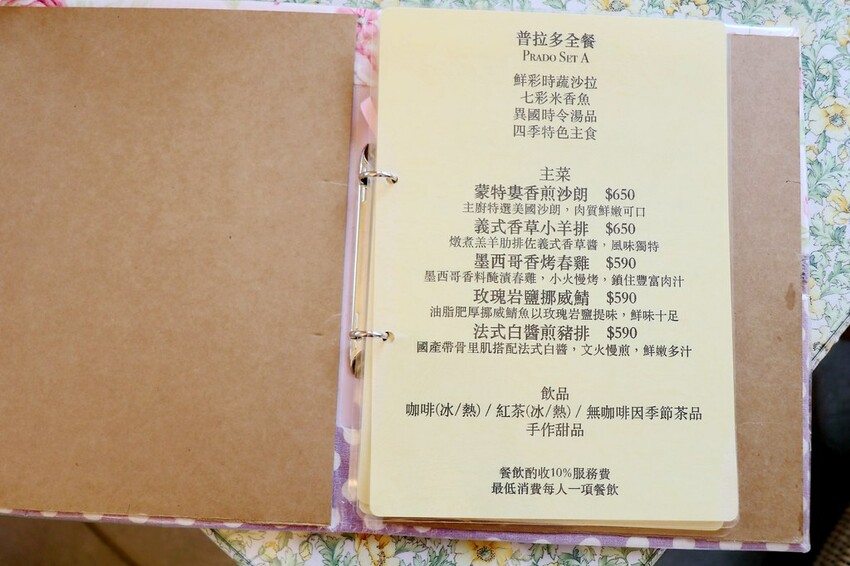 普拉多全餐
PRADO SET A
鮮彩時蔬沙拉
七彩米香魚
異國時令湯品
四季特色主食
主菜
蒙特婁香煎沙朗 $650
主廚特選美國沙朗，肉質鮮嫩可口
義式香草小羊排 $650
燉煮羔羊肋排佐義式香草醬，風味獨特
墨西哥香烤春雞 $590
墨西哥香料醃漬春雞，小火慢烤，鎖住豐富肉汁
玫瑰岩鹽挪威鯖 $590
油脂肥厚挪威鯖魚以玫瑰岩鹽提味，鮮味十足
法式白醬煎豬排 $590
國產帶骨里肌搭配法式白醬，文火慢煎，鮮嫩多汁
飲品
咖啡(冰/熱) / 紅茶(冰/熱) / 無咖啡因季節茶品
手作甜品
餐飲酌收10%服務費
最低消費每人一項餐飲